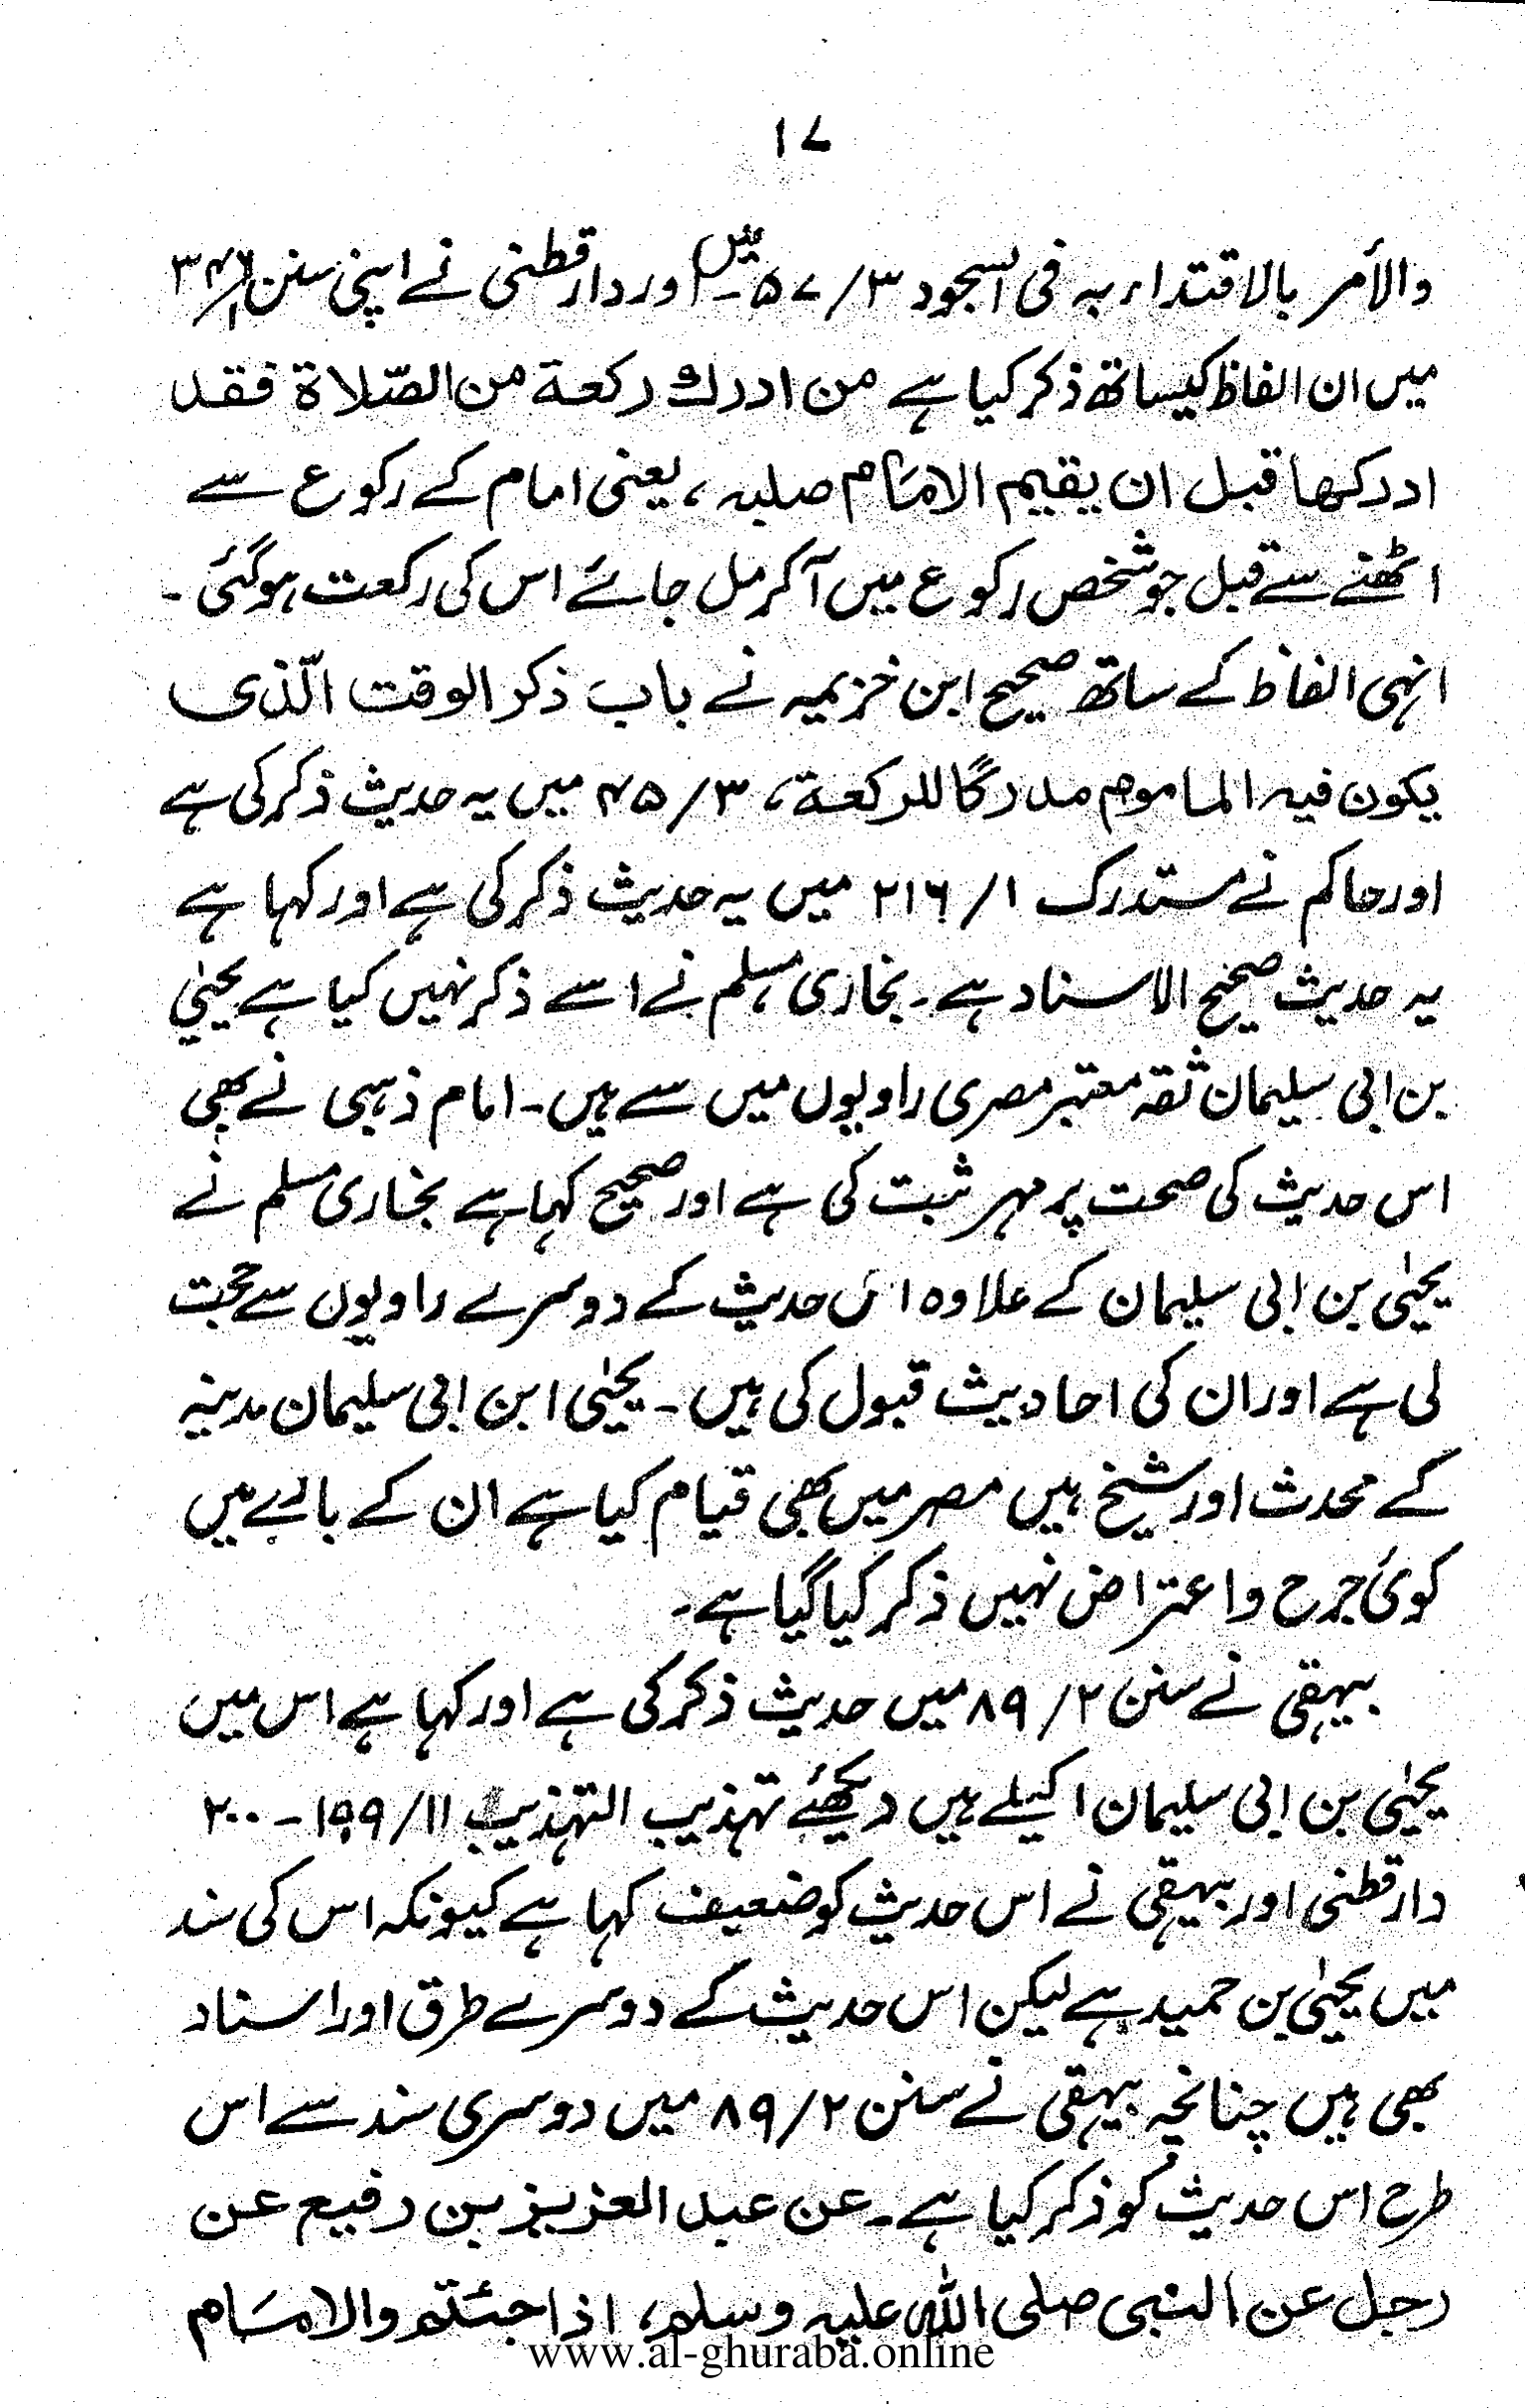 ۱۷
والأمر بالاقتداء بہ فی السجود ۳/ ۵۷ ۔ میں اور دارقطنی نے اپنی سنن ۱/ ۳۴۶
میں ان الفاظ کیساتھ ذکر کیا ہے من ادرك ركعة من الصّلاة فقد
ادركها قبل ان يقيم الامام صلبه ، یعنی امام کے رکوع سے
اٹھنے سے قبل جو شخص رکوع میں آکر مل جائے اس کی رکعت ہوگئی ۔
انہی الفاظ کے ساتھ صحیح ابن خزیمہ نے باب ذكر الوقت الّذى
يكون فيه الماموم مدركًا للركعة ، ۳/ ۴۵ میں یہ حدیث ذکر کی ہے
اور حاکم نے مستدرک ۱/ ۲۱۶ میں یہ حدیث ذکر کی ہے اور کہا ہے
یہ حدیث صحیح الاسناد ہے ۔ بخاری مسلم نے اسے ذکر نہیں کیا ہے یحییٰ
بن ابی سلیمان ثقہ معتبر مصری راویوں میں سے ہیں ۔ امام ذہبی نے بھی
اس حدیث کی صحت پر مہر ثبت کی ہے اور صحیح کہا ہے بخاری مسلم نے
یحییٰ بن ابی سلیمان کے علاوہ اس حدیث کے دوسرے راویوں سے حجت
لی ہے اور ان کی احادیث قبول کی ہیں ۔ یحییٰ ابن ابی سلیمان مدینہ
کے محدث اور شیخ ہیں مصر میں بھی قیام کیا ہے ان کے بارے میں
کوئی جرح واعتراض نہیں ذکر کیا گیا ہے ۔
بیہقی نے سنن ۲/ ۸۹ میں حدیث ذکر کی ہے اور کہا ہے اس میں
یحییٰ بن ابی سلیمان اکیلے ہیں دیکھئے تہذیب التہذیب ۱۱/ ۱۹۹ ۔ ۲۰۰
دارقطنی اور بیہقی نے اس حدیث کو ضعیف کہا ہے کیونکہ اس کی سند
میں یحییٰ بن حمید ہے لیکن اس حدیث کے دوسرے طرق اور اسناد
بھی ہیں چنانچہ بیہقی نے سنن ۲/ ۸۹ میں دوسری سند سے اس
طرح اس حدیث کو ذکر کیا ہے ۔ عن عبد العزيز بن رفيع عن
رجل عن النبى صلى الله عليه وسلم ، اذا جئتم والامام
www.al-ghuraba.online